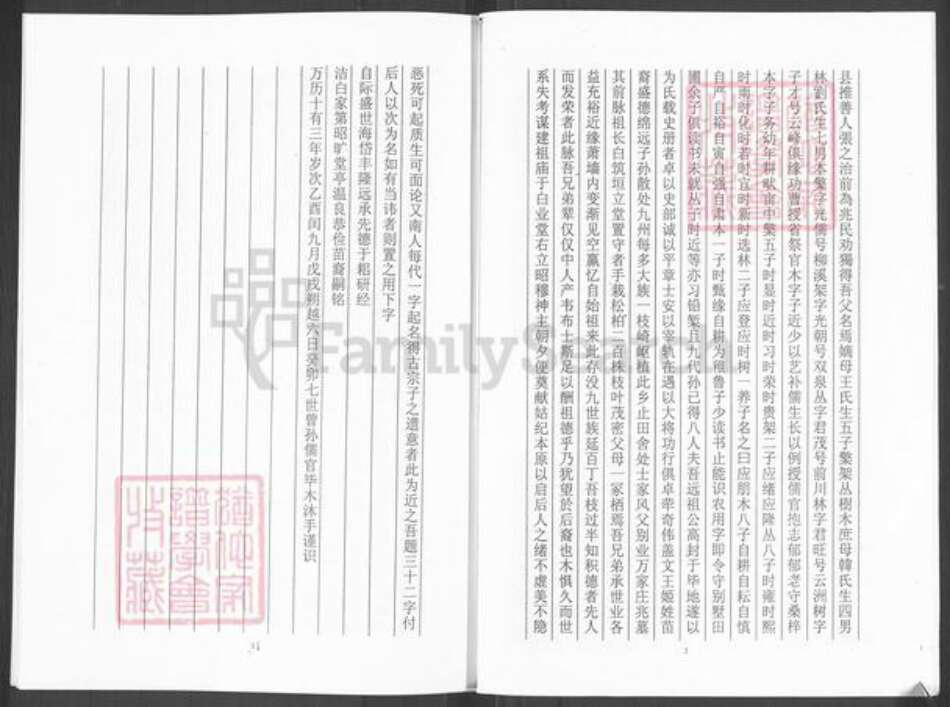 县推善人張之治前為兆民劝獨得吾父名焉嫡母王氏生五子繁架丛樹木庶母韓氏生四男
林劉氏生七男本繁字光儒号柳溪架字光朝号双泉丛字君茂号前川林字君旺号云洲树字
子才号云峰俱缘功曹授省祭官木字子近少以艺补儒生长以例授儒官抱志郁郁老守桑梓
本字子务幼年耕畎亩中繁五子时显时近时习时荣时贵架二子应绪应隆丛八子时雍时熙
时南时化时若时宜时新时选林二子应登应时树一养子名之曰应朋木八子自耕自耘自慎
自严自裕自寅自强自肃本一子时甄缘自耕为稚鲁子少读书止能识农用字即令守别墅田
圃余子俱读书未就丛子时近等亦习铅椠且九代孙己得八人夫吾远祖公高封于毕地遂以
为氏载史册者卓以史部诚以平章士安以宰執在遇以大将功行俱卓荦奇伟盖文王姬姓苗
裔盛德绵远子孙散处九州每多大族一枝崎岖植此乡止田舍处士家风父别业万家庄兆墓
其前脉祖长白筑垣立堂置守者手栽松柏二百株枝叶茂密父母一冢栖焉吾兄弟承世业各
益充裕近缘萧墙内变渐见空羸忆自始祖来此存没九世族延百丁吾枝过半知积德者先人
而发荣者此脉吾兄弟辈仅仅中人产韦布士斯足以酬祖德乎乃犹望於后裔也木惧久而世
系失考谋建祖庙于白业堂右立昭穆神主朝夕便奠献姑纪本原以启后人之绪不虚美不隐
恶死可起质生可面论又南人每代一字起名得古宗子之遗意者此为近之吾题三十二字付
后人以次为名如有当讳者则置之用下字
自际盛世海岱丰隆远承先德于粗研经
洁白家第昭旷堂亭温良恭俭苗裔嗣铭
万历十有三年岁次乙酉闰九月戊戌朔越六日癸卯七世曾孙儒官毕木沐手谨识
FamilySearch